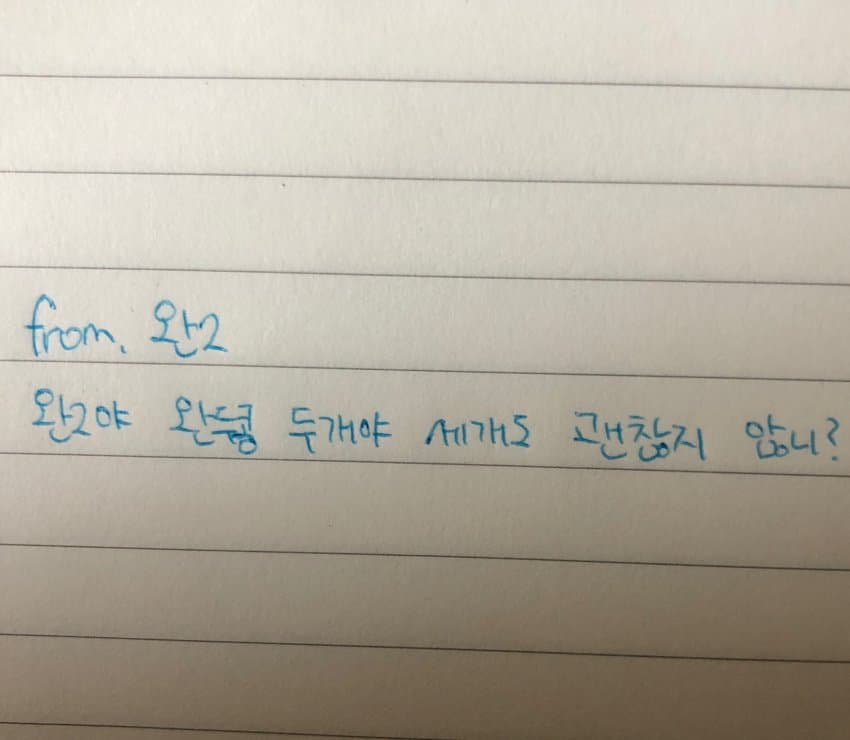 from. 완2
완2야 완콩 두개야 세개도 괜찮지 않니?